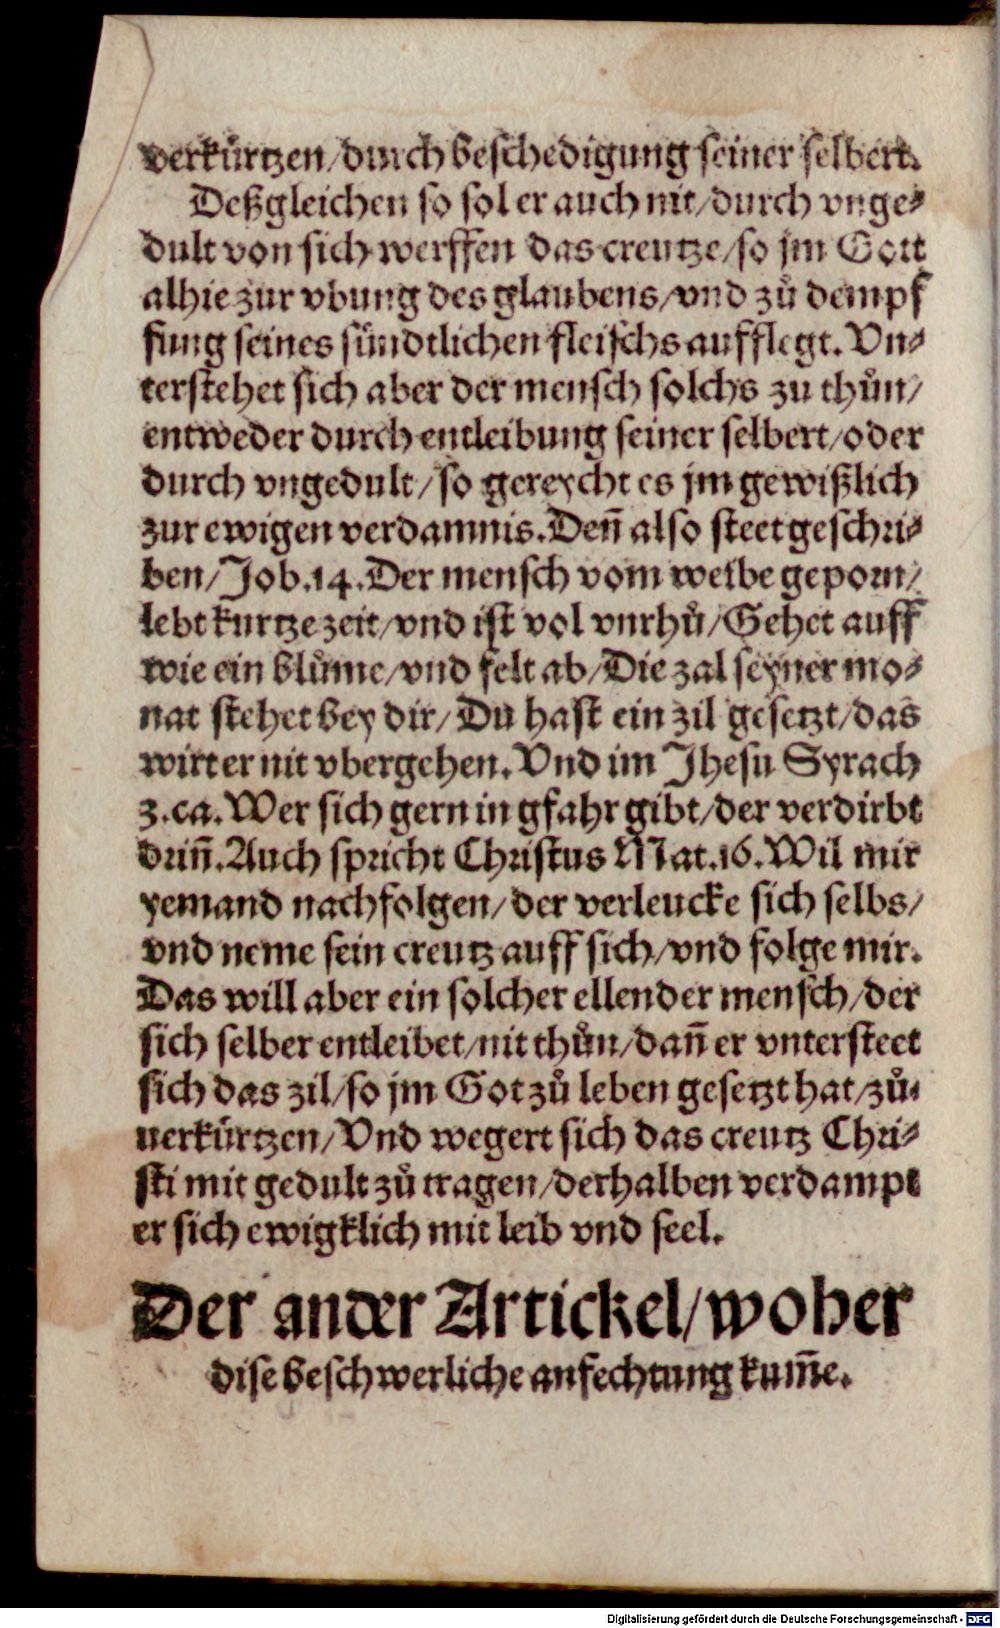 verkürtzen/durch beschedigung seiner selbert.
Deßgleichen so sol er auch nit/durch vnge⸗
dult von sich werffen das creutze/so jm Gott
alhie zur vbung des glaubens/vnd zů dempf
fung seines sündtlichen fleischs aufflegt. Vn⸗
terstehet sich aber der mensch solchs zu thůn/
entweder durch entleibung seiner selbert/oder
durch vngedult/so gereycht es jm gewißlich
zur ewigen verdamnis. Deñ also steet geschri⸗
ben/Job.14. Der mensch vom weibe geporn/
lebt kurtze zeit/vnd ist vol vnrhů/Gehet auff
wie ein blůme/vnd felt ab/Die zal seyner mo⸗
nat stehet bey dir/Du hast ein zil gesetzt/das
wirt er nit vbergehen. Vnd im Jhesu Syrach
3.ca. Wer sich gern in gfahr gibt/der verdirbt
driñ. Auch spricht Christus Mat.16. Wil mir
yemand nachfolgen/der verleucke sich selbs/
vnd neme sein creutz auff sich/vnd folge mir.
Das will aber ein solcher ellender mensch/der
sich selber entleibet/nit thůn/dañ er vntersteet
sich das zil/so jm Got zů leben gesetzt hat/zů⸗
uerkürtzen/Vnd wegert sich das creutz Chri⸗
sti mit gedult zů tragen/derhalben verdampt
er sich ewigklich mit leib vnd seel.
Der ander Artickel/woher
dise beschwerliche anfechtung kum̃e.
Digitalisierung gefördert durch die Deutsche Forschungsgemeinschaft - DFG